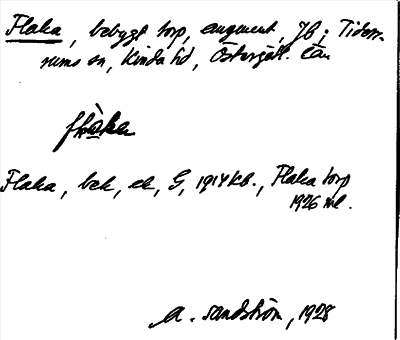 Flaka, bebyggt torp, augment, JB; Tiders-
rums sn, Kinda hd, Östergötl. län
flàka
Flaka, bek, ek, G, 1914 kb., Flaka torp
1926 ml.
A. Sandström, 1928